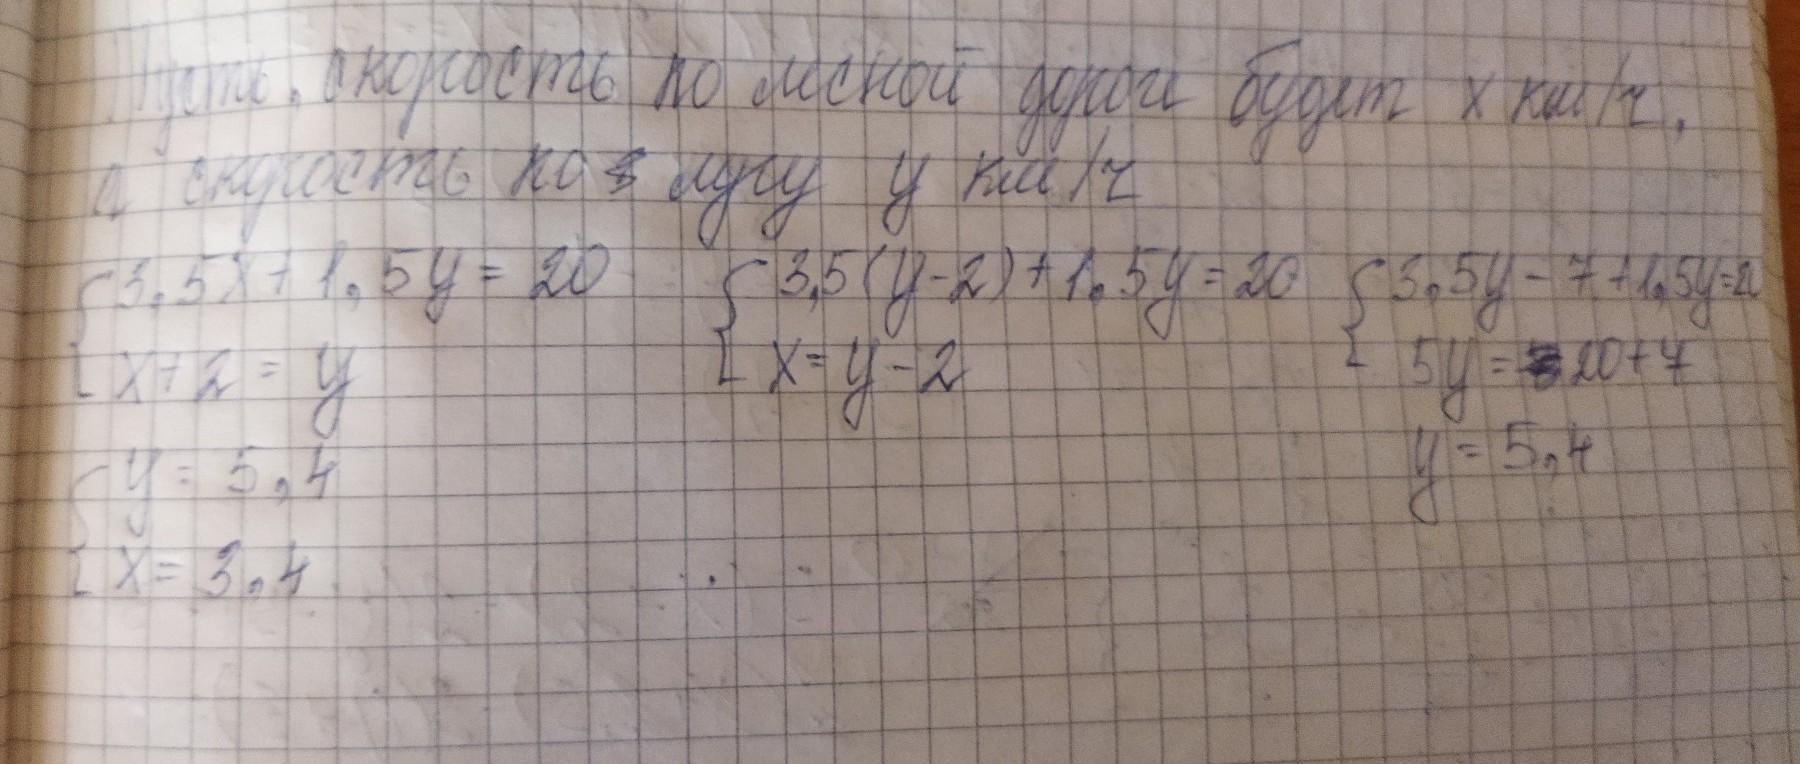 Пусть, скорость по лесной дороге будет x км/ч,
а скорость по лугу y км/ч
{3,5x+1,5y=20 {3,5(y-2)+1,5y=20 {3,5y-7+1,5y=20
x+2=y x=y-2 5y=20+7
{y=5,4 y=5,4
x=3,4